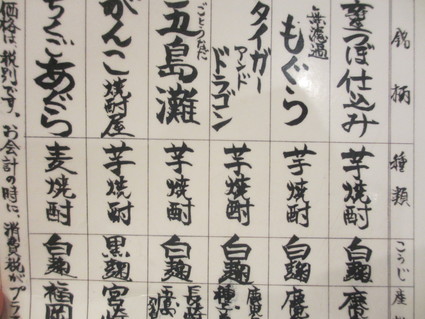 銘柄
種類
こうじ
産
壺つぼ仕込み
芋焼酎
白麹
無濾過
もぐら
芋焼酎
白麹
タイガー
アンド
ドラゴン
芋焼酎
白麹
ごとうなだ
五島灘
芋焼酎
白麹
長崎
がんこ焼酎屋
芋焼酎
黒麹
宮崎
ちくごあぐら
麦焼酎
白麹
福岡
価格は、税別です。お会計の時に、消費税がプラ